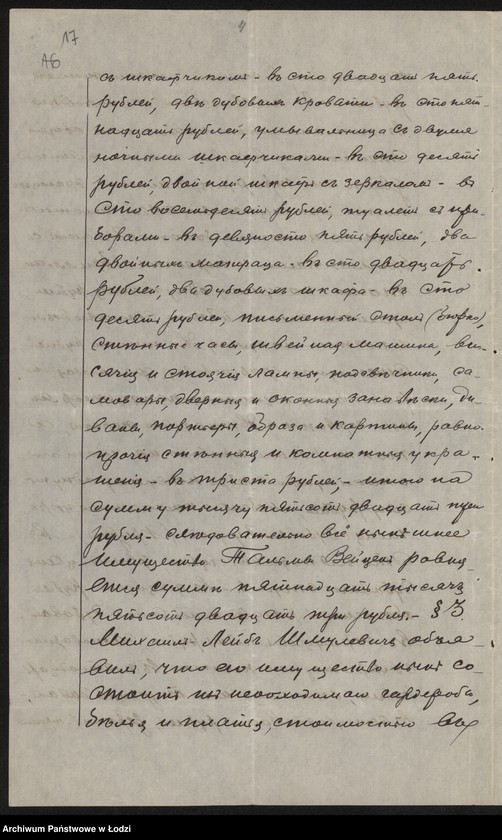 17
AБ
съ шкафчикомъ - въ сто двадцать пять
рублей, двѣ дубовыхъ кровати - въ сто пят-
надцать рублей, умывальница съ двумя
ночными шкафчиками - въ сто десять
рублей, двойной шкафъ съ зеркаломъ - въ
сто восемьдесятъ рублей, туалетъ съ при-
борами - въ девяносто пять рублей, два
двойныхъ матраца - въ сто двадцать
рублей, два дубовыхъ шкафа - въ сто
десять рублей, письменный столъ (бюро),
стѣнные часы, швейная машина, ви-
сячія и стоячія лампы, подсвѣчники, са-
мовары, дверныя и оконныя занавѣски, ди-
ваны, портьеры, образа и картины, равно
прочія стѣнныя и комнатныя укра-
шенія - въ триста рублей, - итого на
сумму тысячу пятьсотъ двадцать три
рубля - слѣдовательно всё нынѣшнее
имущество Тальмы Вейценъ равня-
ется суммѣ пятнадцать тысячъ
пятьсотъ двадцать три рубля. - § 3.
Михаилъ-Лейбъ Шмулевичъ объя-
вилъ, что его имущество нынѣ со-
стоитъ изъ необходимаго гардероба,
бѣлья и платья, стоимостью въ
Archiwum Państwowe w Łodzi